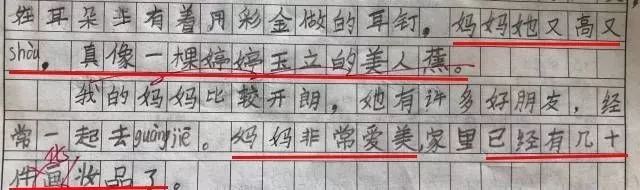 娃耳朵上有着用彩金做的耳钉。妈妈她又高又
shòu，真像一棵婷婷玉立的美人蕉。
我的妈妈比较开朗，她有许多好朋友，经
常一起去guàngjiē。妈妈非常爱美，家里已经有几十
件画化妆品了。